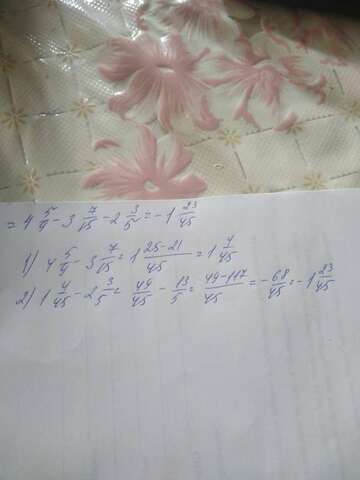 = 4 5/9 - 3 7/15 - 2 3/5 = - 1 23/45
1) 4 5/9 - 3 7/15 = 1 25-21/45 = 1 4/45
2) 1 4/45 - 2 3/5 = 49/45 - 13/5 = 49-117/45 = - 68/45 = - 1 23/45